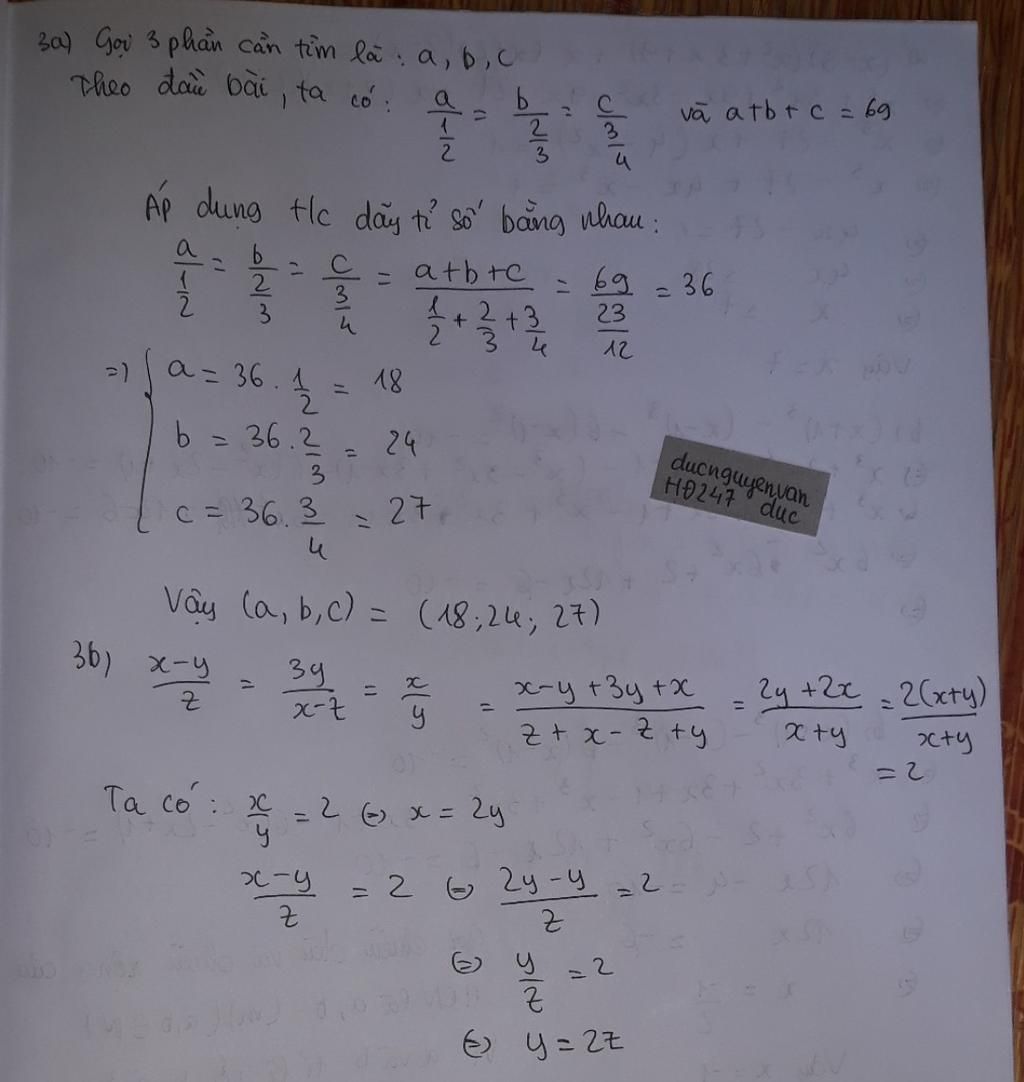 3a) Gọi 3 phần cần tìm là: a, b, c
Theo đầu bài, ta có: a/(1/2) = b/(2/3) = c/(3/4) và a+b+c = 69
Áp dụng t/c dãy tỉ số bằng nhau:
a/(1/2) = b/(2/3) = c/(3/4) = (a+b+c)/(1/2 + 2/3 + 3/4) = 69/(23/12) = 36
=> { a = 36 . 1/2 = 18
b = 36 . 2/3 = 24
c = 36 . 3/4 = 27
ducnguyenvan
HĐ247 duc
Vậy (a, b, c) = (18; 24; 27)
3b) (x-y)/z = 3y/(x-z) = x/y = (x-y+3y+x)/(z+x-z+y) = (2y+2x)/(x+y) = 2(x+y)/(x+y)
= 2
Ta có: x/y = 2 ⇔ x = 2y
(x-y)/z = 2 ⇔ (2y-y)/z = 2
⇔ y/z = 2
⇔ y = 2z